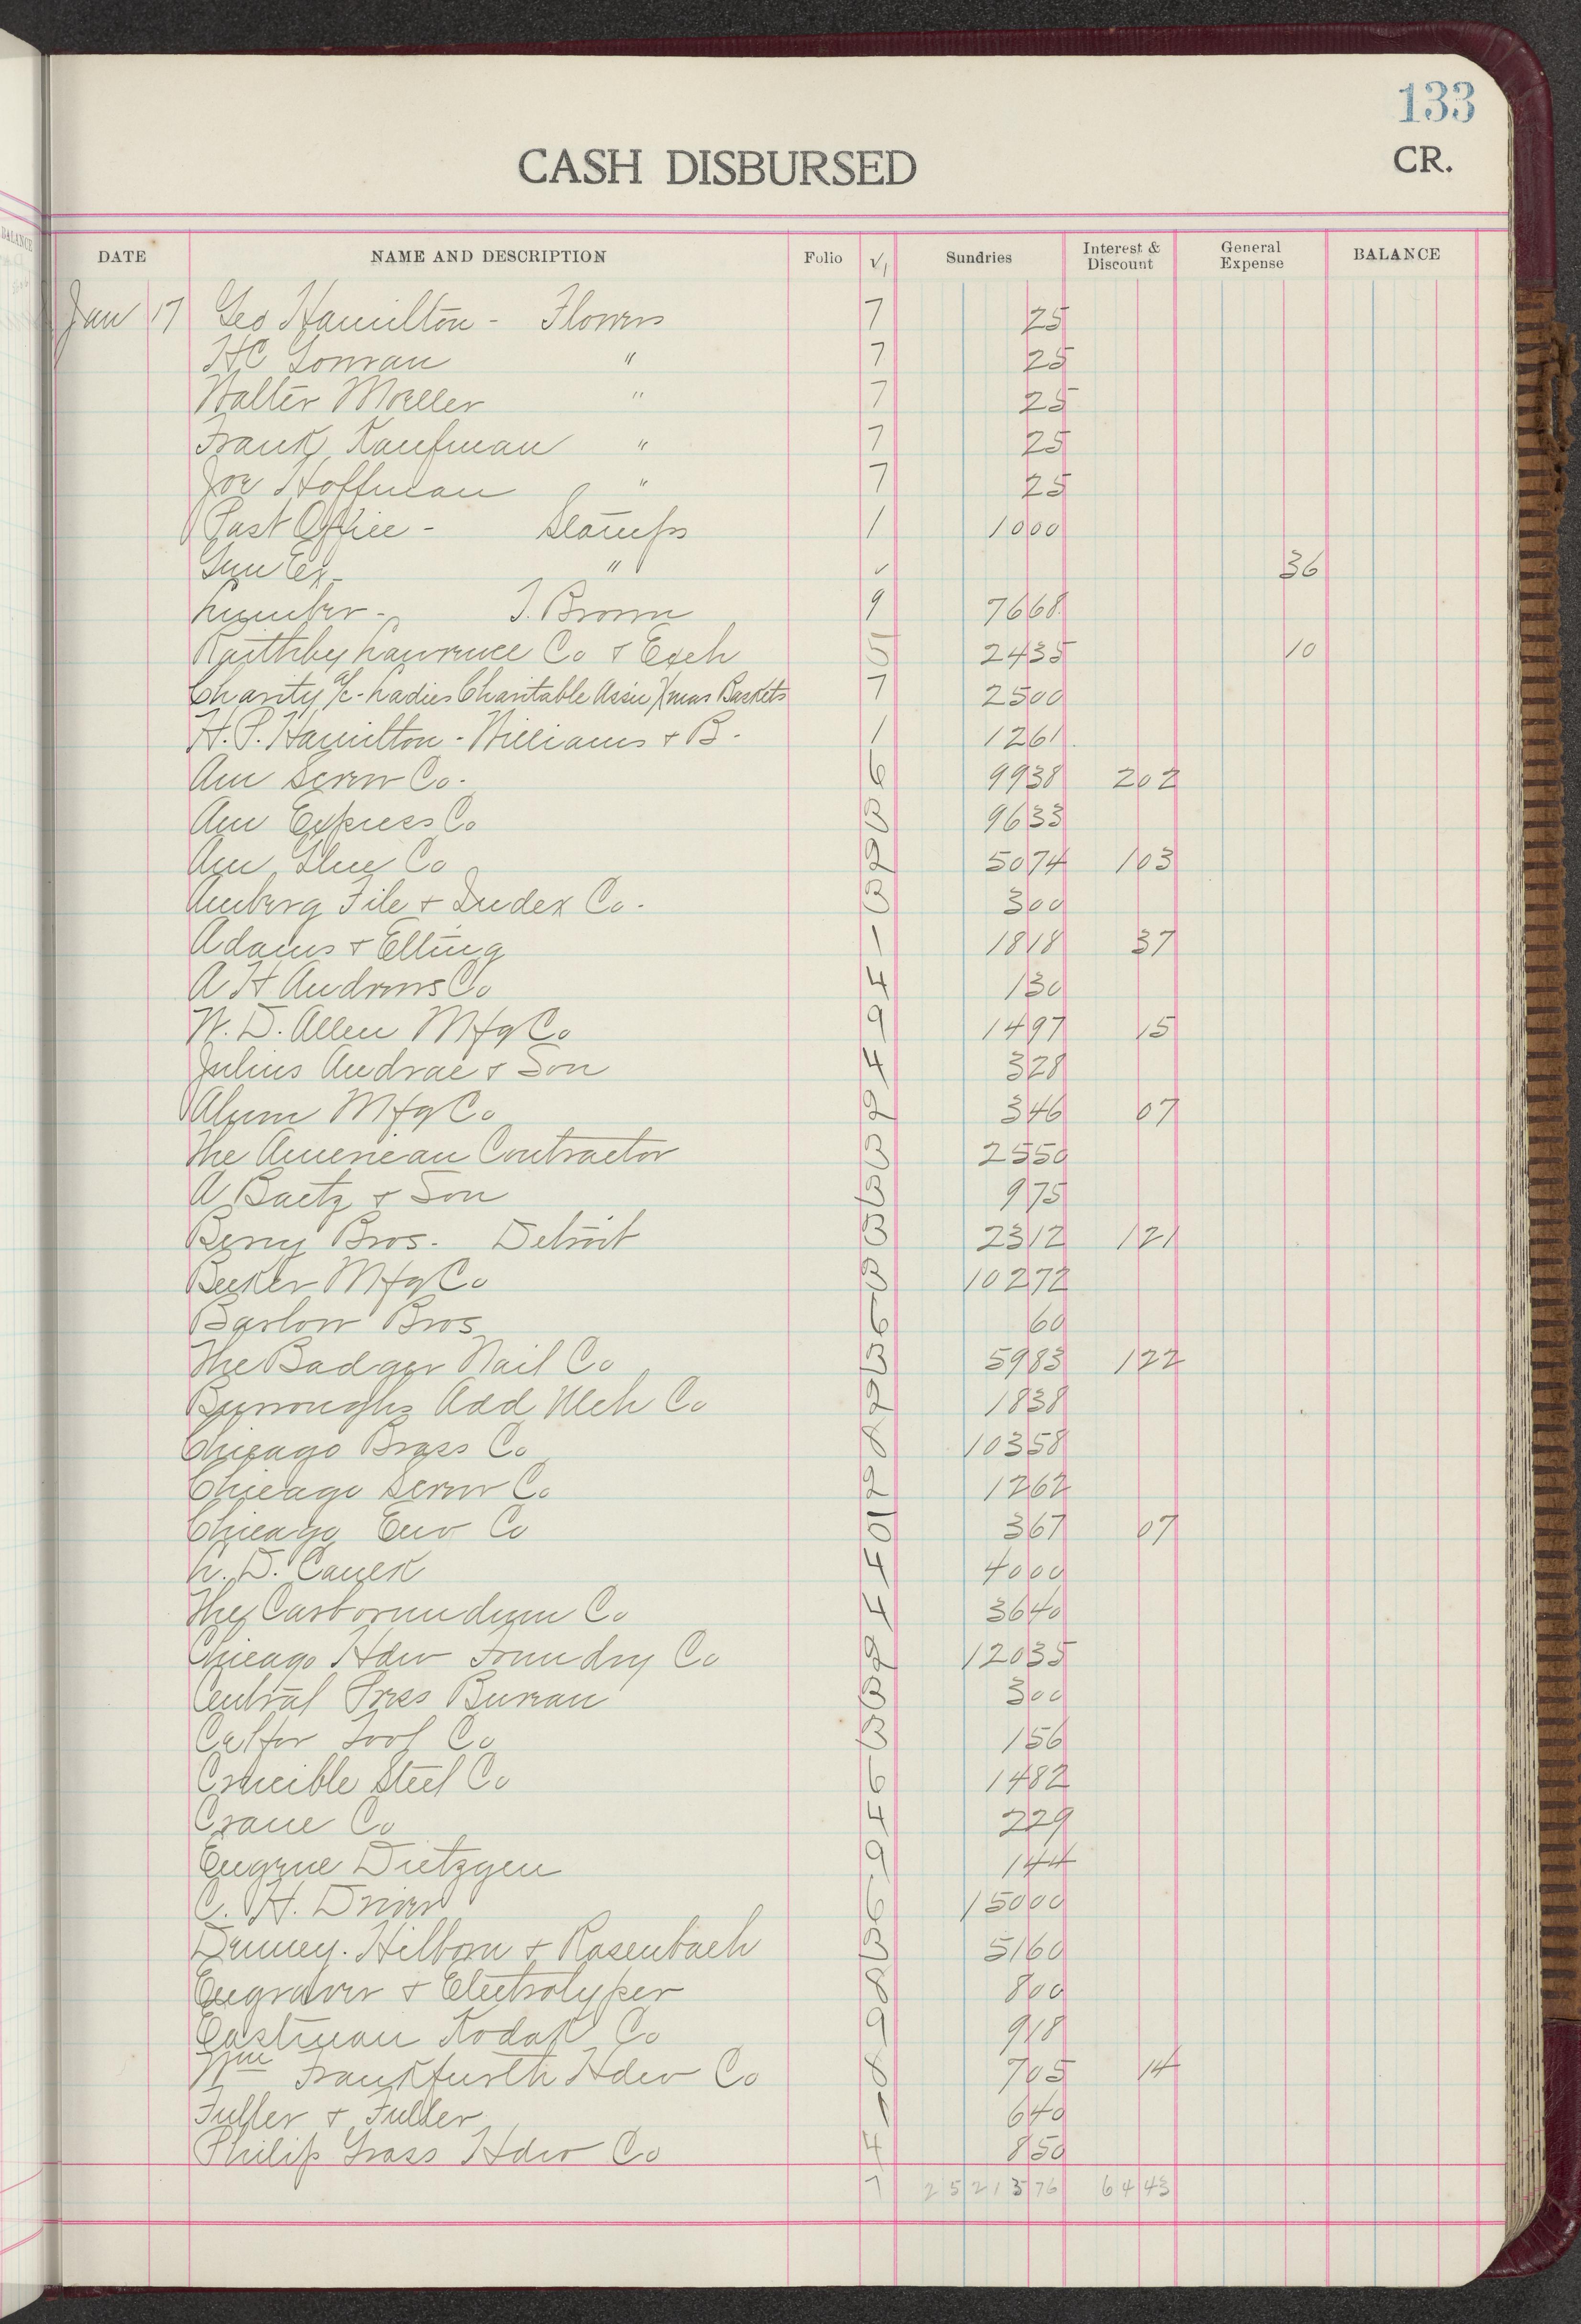 133
CASH DISBURSED
CR.
BALANCE
DATE NAME AND DESCRIPTION Folio √ Sundries Interest & Discount General Expense BALANCE
Jan 17 Geo Hamilton - Flowers 7 25
HC Gonran " 7 25
Walter Moeller " 7 25
Frank Kaufman " 7 25
Joe Hoffman " 7 25
Post Office - Stamps 1 1000
Gen Ex - " ✓ 36
Lumber - T. Brown 9 7668
Raithby Lawrence Co & Exch 5 2435 10
Charity a/c - Ladies Charitable Assn Xmas Baskets 7 2500
H. P. Hamilton - Williams & B. 1 1261
Am Screw Co. 6 9938 202
Am Express Co 3 9633
Am Glue Co 2 5074 103
Amberg File & Index Co. 3 300
Adams & Elting 1 1818 37
A H Andrews Co 4 130
W. D. Allen Mfg Co 9 1497 15
Julius Andrae & Son 4 328
Alum Mfg Co 2 346 07
The American Contractor 3 2550
A Baetz & Son 3 975
Berry Bros. Detroit 3 2312 121
Becker Mfg Co 3 10272
Barlow Bros 6 60
The Badger Nail Co 3 5983 122
Burroughs Add Mch Co 2 1838
Chicago Brass Co 8 10358
Chicago Screw Co 2 1262
Chicago Env Co 5 367 07
L. D. Caulk 4 4000
The Carborundum Co 4 3640
Chicago Hdw Foundry Co 2 12035
Central Press Bureau 3 300
Calfor Tool Co 3 156
Crucible Steel Co 6 1482
Crane Co 4 229
Eugene Dietzgen 9 144
C. H. Driver 6 15000
Denney. Hilborn & Rosenbach 3 5160
Engraver & Electrotyper 8 800
Eastman Kodak Co 9 918
Wm Frankfurth Hdw Co 8 705 14
Fuller & Fuller 1 640
Philip Gross Hdw Co 4 850
7 2521376 6443